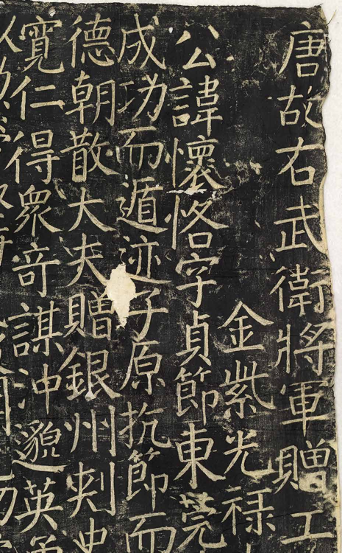 唐故右武衛將軍贈工
金紫光祿
公諱懷恪字貞節東莞
成功而遁迹子原抗節而
德朝散大夫贈銀州刺史
寬仁得衆奇謀沖邈英